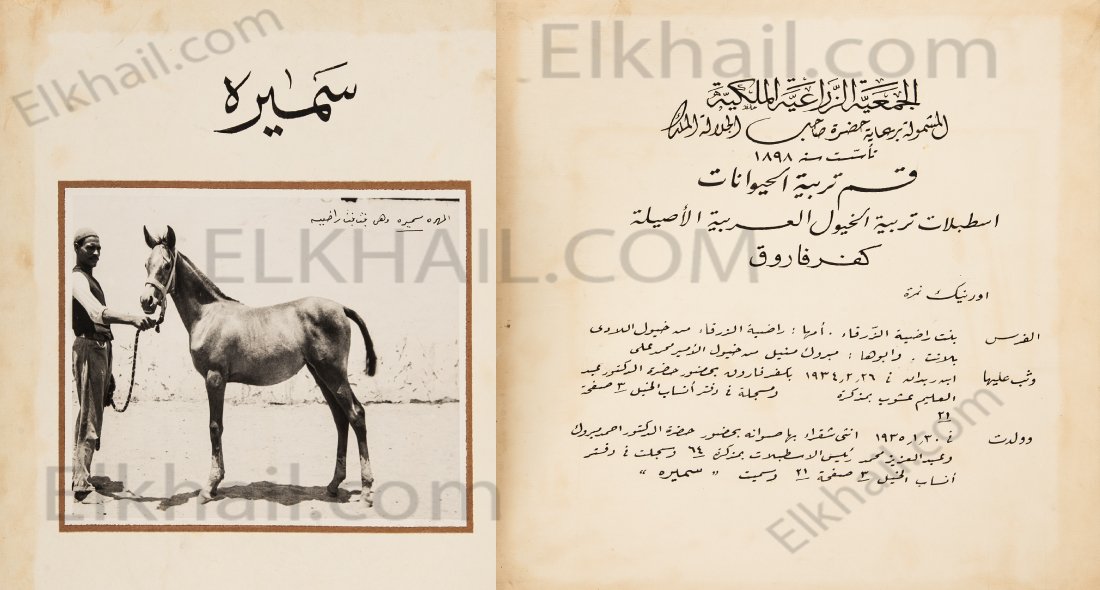 Elkhail.com
سميره
المهره سميره وهى بنت بنت راضيه
ELKHAIL.COM
Elkhail.com
Elkhail.com
الجمعية الزراعية الملكية
المشمولة برعاية حضرة صاحب الجلالة الملك
تأسست سنه ١٨٩٨
قسم تربية الحيوانات
اسطبلات تربية الخيول العربية الأصيلة
كفر فاروق
اورنيك نمرة
الفرس بنت راضية الزرقاء . أمها : راضية الزرقاء من خيول اللادى
بلانت . وابوها : مبروك منيل من خيول الأمير محمد على
وثب عليها ابن ربدان فى ٢٦ ر ٢ ر ١٩٣٤ بكفر فاروق بحضور حضرة الدكتور عبد
العليم عشوب بمذكرة ومسجلة فى دفتر أنساب الخيل ٣ صفحة
٢١
وولدت فى ٣٠ ر ١ ر ١٩٣٥ انثى شقراء بحضور حضرة الدكتور احمد مبروك
وعبد العزيز محمد رئيس الاسطبلات بمذكرة ٦٤ وسجلت فى دفتر
أنساب الخيل ٣ صفحة ٢١ وسميت " سميره "
Elkhail.com